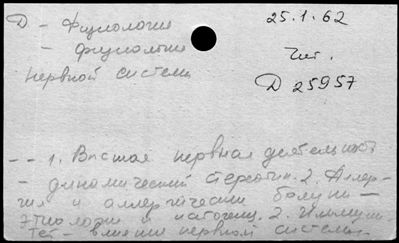 Д - Физиология
25.1.62
- физиологии
Чит.
нервной системы
Д 25957
-- 1. Высшая нервная деятельность
- динамический стереотип. 2. Аллер-
гия и аллергические болезни -
этиология и патогенез. 2. Иммуни-
тет - влияние нервной системы.